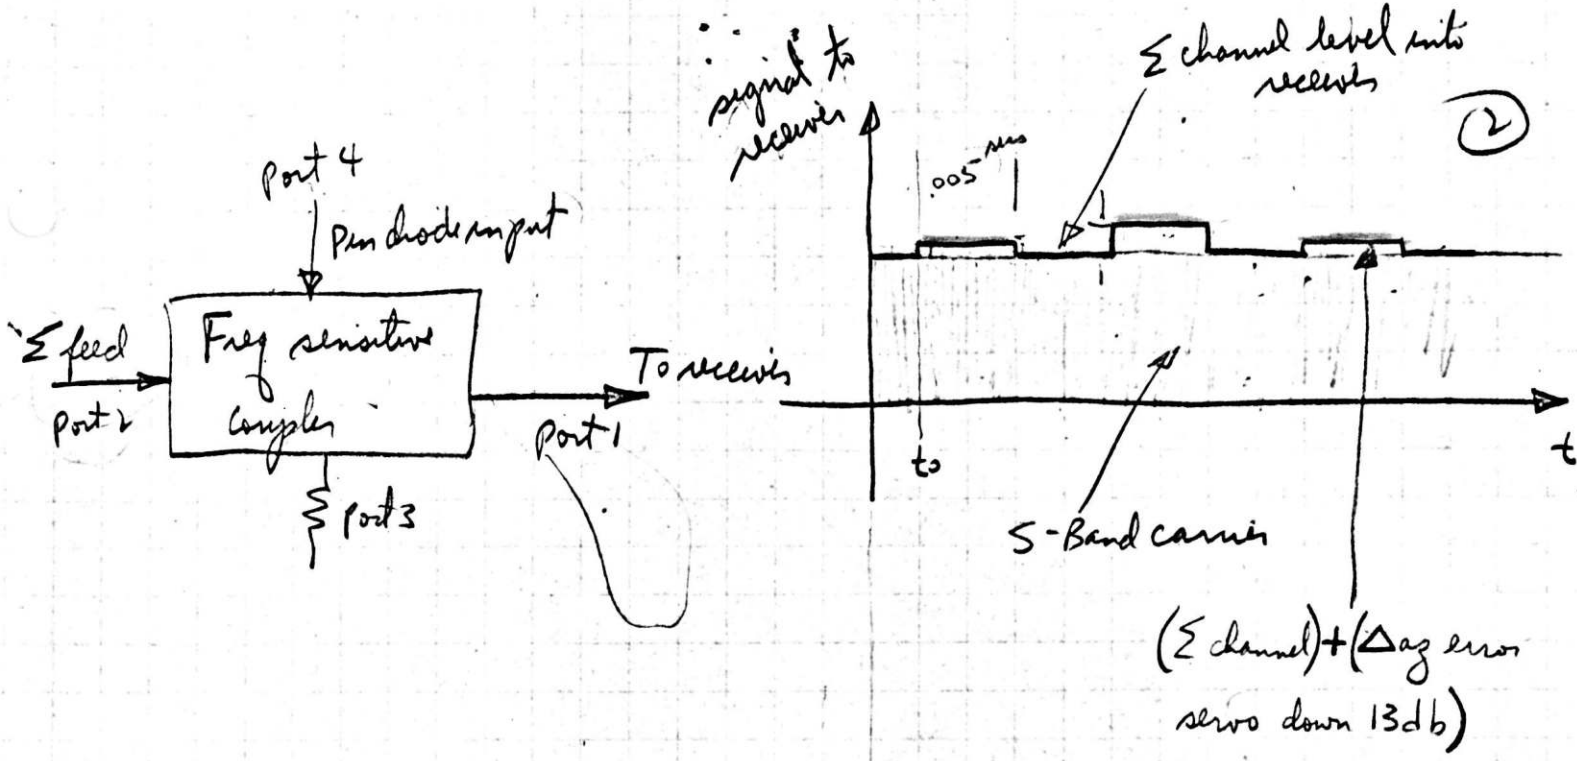 Port 4
Pin diode input
Σ feed
Port 2
Freq sensitive
coupler
To receiver
Port 1
Port 3
signal to
receiver
.005 sec
Σ channel level into
receiver
2
to
t
S-Band carrier
(Σ channel) + (Δ az error
servo down 13db)